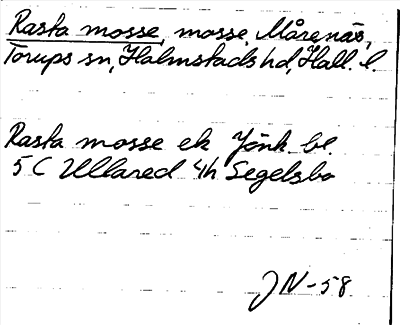 Rasta mosse, mosse, Mårenäs,
Torups sn, Halmstads hd, Hall. l.
Rasta mosse ek Jönk. bl.
5 C Ullared 4h Segelsbo
JN-58